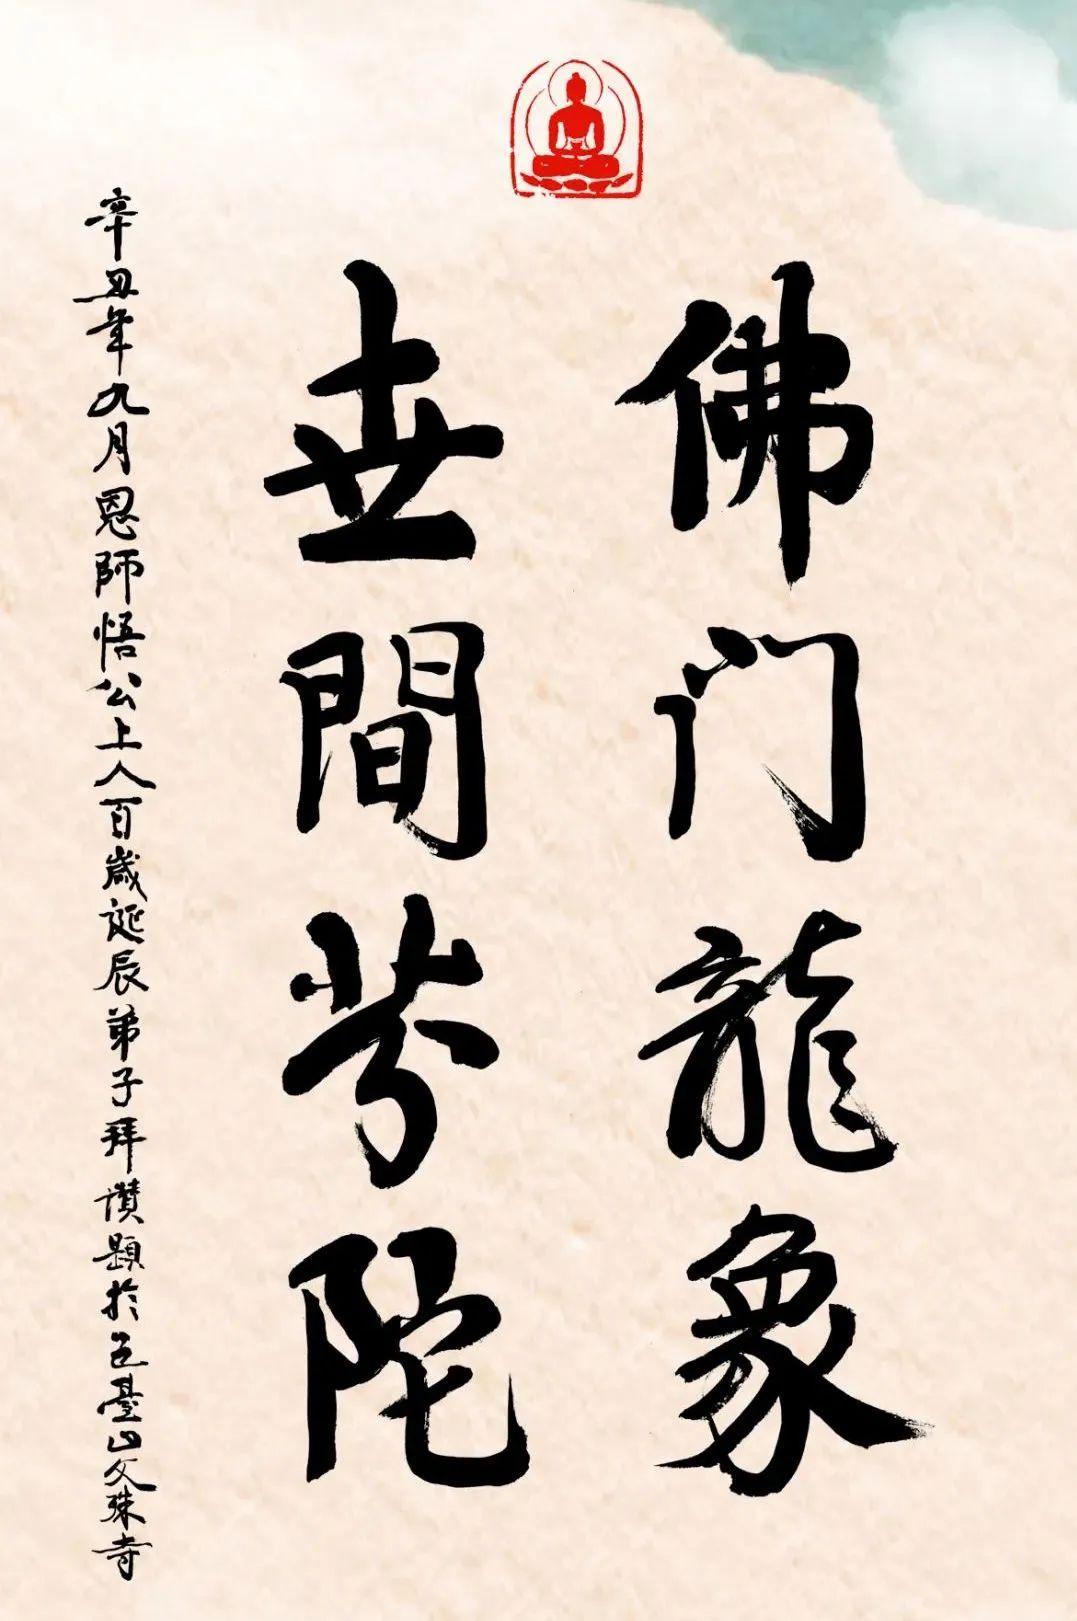 佛门龍象
世間芬陀
辛丑年九月恩師悟公上人百歲誕辰弟子拜讚題於五臺山文殊寺